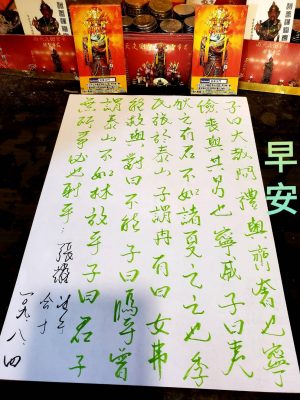 子曰大哉問禮與其奢也寧
儉喪與其易也寧戚子曰夷
狄之有君不如諸夏之亡也季
氏旅於泰山子謂冉有曰女弗
能救與對曰不能子曰嗚乎曾
謂泰山不如林放乎子曰君子
無所爭必也射乎
一〇九、八、四
早安